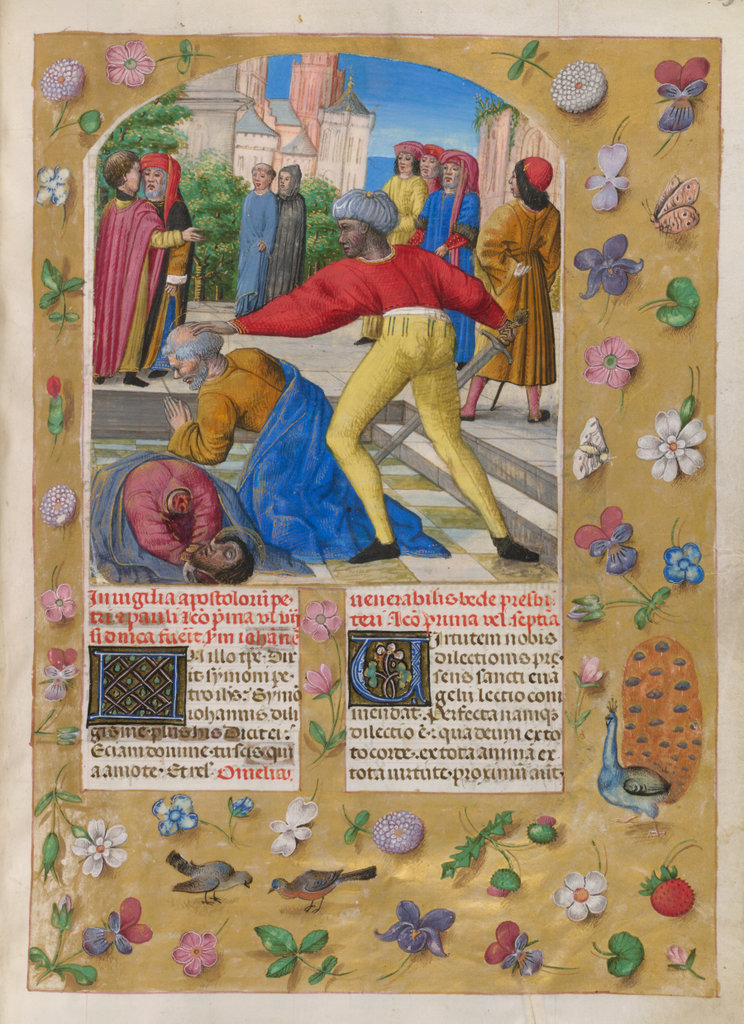 In vigilia apostolorū pe-
tri et pauli lcō p̄ma vl vij
si dn̄ica fuerit. S'm iohānē
In illo tp̄e. Dix
it symoni pe-
tro ihs: Symō
iohannis dili
gis me plus his. Dicit ei:
Eciam domine tu scis qui
a amo te. Et rel. Omelia.
venerabilis bede presbi-
teri lcō prima vel septīa
Virtutem nobis
dilectionis pre-
sens sancti eua
gelii lectio com
mendat. Perfecta namqꝫ
dilectio ē: qua deum ex to
to corde. ex tota anima ex
tota virtute. proximū aūt.